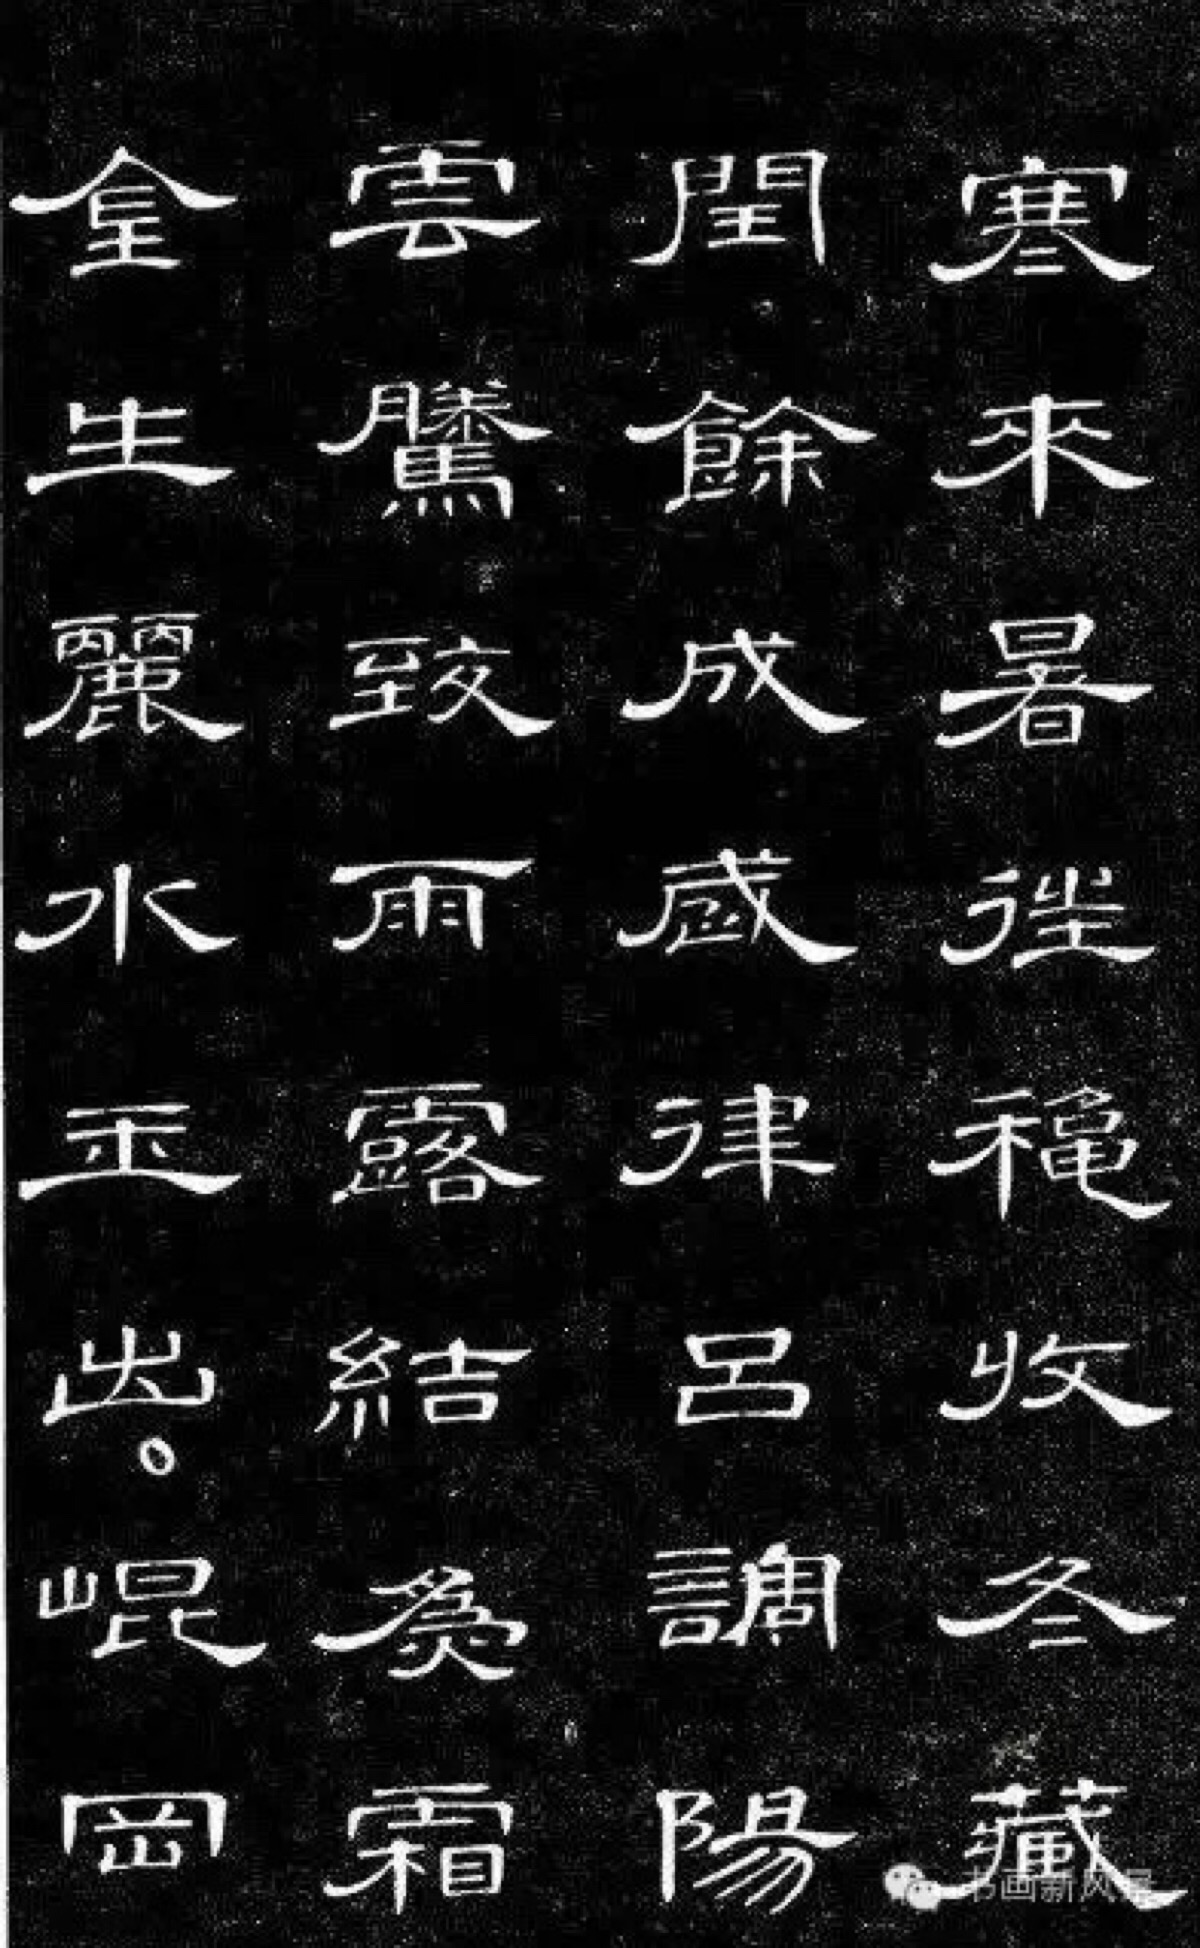 寒來暑往穐收冬藏
閏餘成歲律呂調陽
雲騰致雨露結爲霜
金生麗水玉出。崐岡
书画新风景